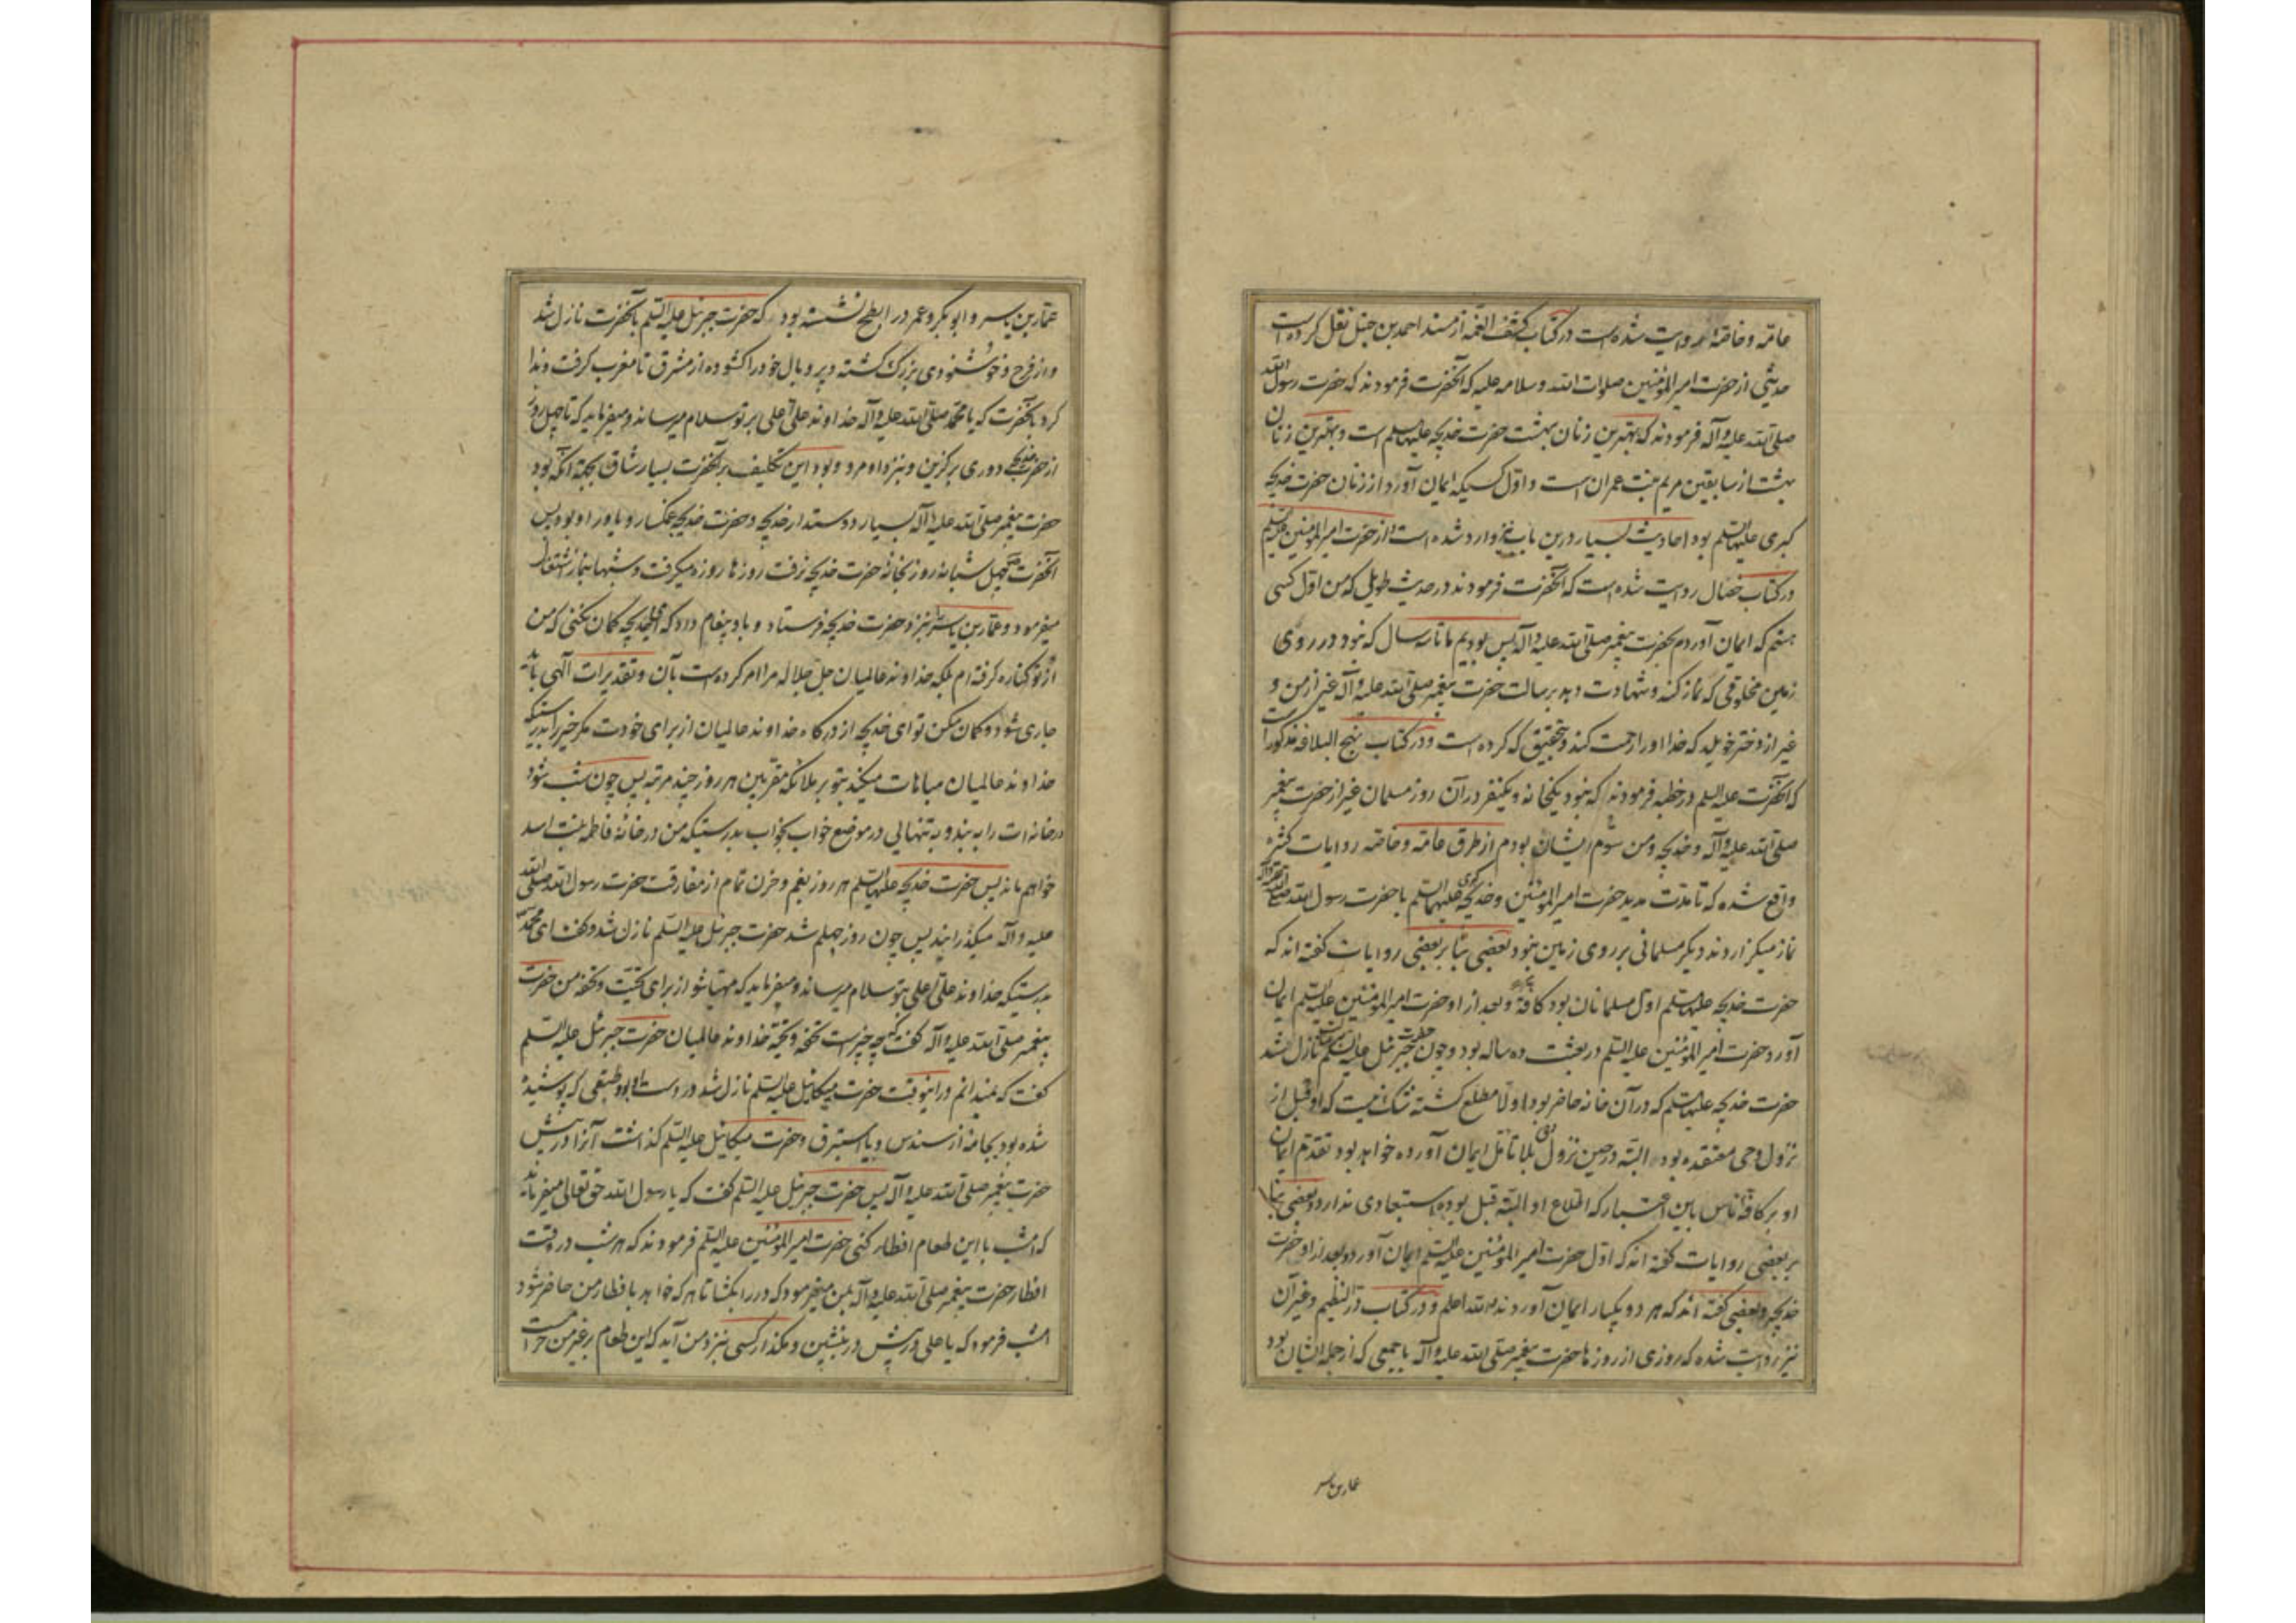 عامّه و خاصّه روایت شده است در کتاب کشف الغمّه از مسند احمد بن حنبل نقل کرده است
حدیثی از حضرت امیرالمؤمنین صلوات الله و سلامه علیه که آنحضرت فرمودند که حضرت رسول الله
صلی الله علیه و آله فرمودند که بهترین زنان بهشت حضرت خدیجه علیها السلم است و بهترین زنان
بهشت از سابقین مریم بنت عمران است و اول کسیکه ایمان آورد از زنان حضرت خدیجه
کبری علیها السلم بود احادیث بسیار درین باب نیز وارد شده است از حضرت امیرالمؤمنین علیه السلم
در کتاب خصال روایت شده است که آنحضرت فرمودند در حدیث طویل که من اول کسی
هستم که ایمان آوردم بحضرت پیغمبر صلی الله علیه و آله پس بودیم ما تا سه سال که نبود در روی
زمین مخلوقی که نماز کند و شهادت دهد برسالت حضرت پیغمبر صلی الله علیه و آله غیر از من و
غیر از دختر خویلد که خدا او را رحمت کند و بتحقیق که کرده است و در کتاب نهج البلاغه مذکور است
که آنحضرت علیه السلم در خطبه فرمودند که نبود یکخانه و یکنفر در آن روز مسلمان غیر از حضرت پیغمبر
صلی الله علیه و آله و خدیجه و من سوم ایشان بودم از طرق عامّه و خاصّه روایات کثیره
واقع شده که تا مدت مدید حضرت امیرالمؤمنین و خدیجه کبری علیهما السلم با حضرت رسول الله صلی الله علیه و آله
نماز میگزاردند دیگر مسلمانی بر روی زمین نبود بعضی بنا بر بعضی روایات گفته اند که
حضرت خدیجه علیها السلم اول مسلمانان بود کافة و بعد از او حضرت امیرالمؤمنین علیه السلم ایمان
آورد و حضرت امیرالمؤمنین علیه السلم در بعثت ده ساله بود و چون حضرت جبرئیل علیه السلم نازل شد
حضرت خدیجه علیها السلم که در آن خانه حاضر بود اولا مطلع گشته شک نیست که او قبل از
نزول وحی معتقده بود البته در حین نزول وحی بلا تامل ایمان آورده خواهد بود تقدم ایمان
او بر کافه ناس باین اعتبار که اطلاع او البته قبل بوده استبعادی ندارد و بعضی بنا
بر بعضی روایات گفته اند که اول حضرت امیرالمؤمنین علیه السلم ایمان آورد و بعد از او حضرت
خدیجه و بعضی گفته اند که هر دو یکبار ایمان آوردند و الله اعلم و در کتاب درّ النظیم و غیر آن
نیز روایت شده که روزی از روزها حضرت پیغمبر صلی الله علیه و آله با جمعی که از جمله ایشان بود
عمار بن یاسر
عمّار بن یاسر و ابوبکر و عمر در ابطح نشسته بود که حضرت جبرئیل علیه السلم بآنحضرت نازل شد
و از فرح و خوشنودی بزرگ گشته و پر و بال خود را گشوده از مشرق تا مغرب گرفت و ندا
کرد بآنحضرت که یا محمد صلی الله علیه و آله خداوند علی اعلی بر تو سلام میرساند و میفرماید که تا چهل روز
از حضرت خدیجه دوری برگزین و بنزد او مرو و بود این تکلیف بر آنحضرت بسیار شاق بجهة آنکه بود
حضرت پیغمبر صلی الله علیه و آله بسیار دوستدار خدیجه و حضرت خدیجه غمگسار و یاور او بود پس
آنحضرت چهل شبانه روز بخانه حضرت خدیجه نرفت روزها روزه میگرفت و شبها بنماز اشتغال
میفرمود و عمّار بن یاسر را بنزد حضرت خدیجه فرستاد و باو پیغام داد که ای خدیجه گمان نکنی که من
از تو کناره گرفته ام بلکه خداوند عالمیان جل جلاله مرا امر کرده است بآن و تقدیرات الهی باید
جاری شود و گمان مکن تو ای خدیجه از درگاه خداوند عالمیان از برای خودت مگر خیر را بدرستیکه
خداوند عالمیان مباهات میکند بتو بر ملائکه مقربین هر روز چند مرتبه پس چون شب شود
در خانه ات را به بند و به تنهائی در موضع خواب بخواب بدرستیکه من در خانه فاطمه بنت اسد
خواهم ماند پس حضرت خدیجه علیها السلم هر روز بغم و حزن تمام از مفارقت حضرت رسول الله صلی الله
علیه و آله میگذرانید پس چون روز چهلم شد حضرت جبرئیل علیه السلم نازل شد و گفت ای محمد
بدرستیکه خداوند علی اعلی بتو سلام میرساند و میفرماید که مهیا شو از برای تحیت و تحفه من حضرت
پیغمبر صلی الله علیه و آله گفت که چه چیز است تحفه و تحیه خداوند عالمیان حضرت جبرئیل علیه السلم
گفت که نمیدانم در اینوقت حضرت میکائیل علیه السلم نازل شد در دست او بود طبقی که پوشیده
شده بود بجامه از سندس و یا استبرق و حضرت میکائیل علیه السلم گذاشت آنرا در پیش
حضرت پیغمبر صلی الله علیه و آله پس حضرت جبرئیل علیه السلم گفت که یا رسول الله حق تعالی میفرماید
که امشب با این طعام افطار کنی حضرت امیرالمؤمنین علیه السلم فرمودند که هر شب در وقت
افطار حضرت پیغمبر صلی الله علیه و آله بمن میفرمود که در را بگشا تا هر که خواهد بافطار من حاضر شود
امشب فرمود که یا علی در پیش در بنشین و مگذار کسی بنزد من آید که این طعام بر غیر من حرام است